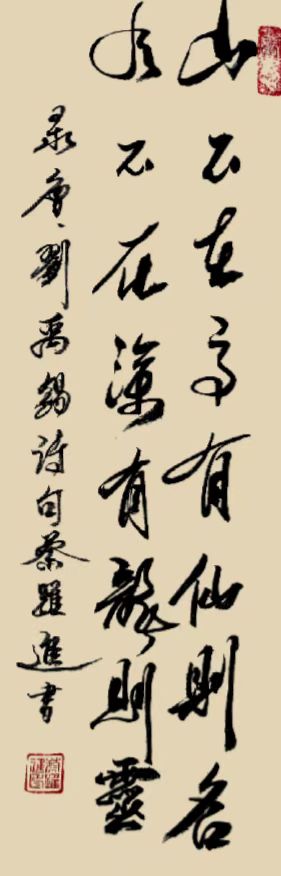 山不在高有仙則名
水不在深有龍則靈
录唐、劉禹錫詩句蔡躍進書